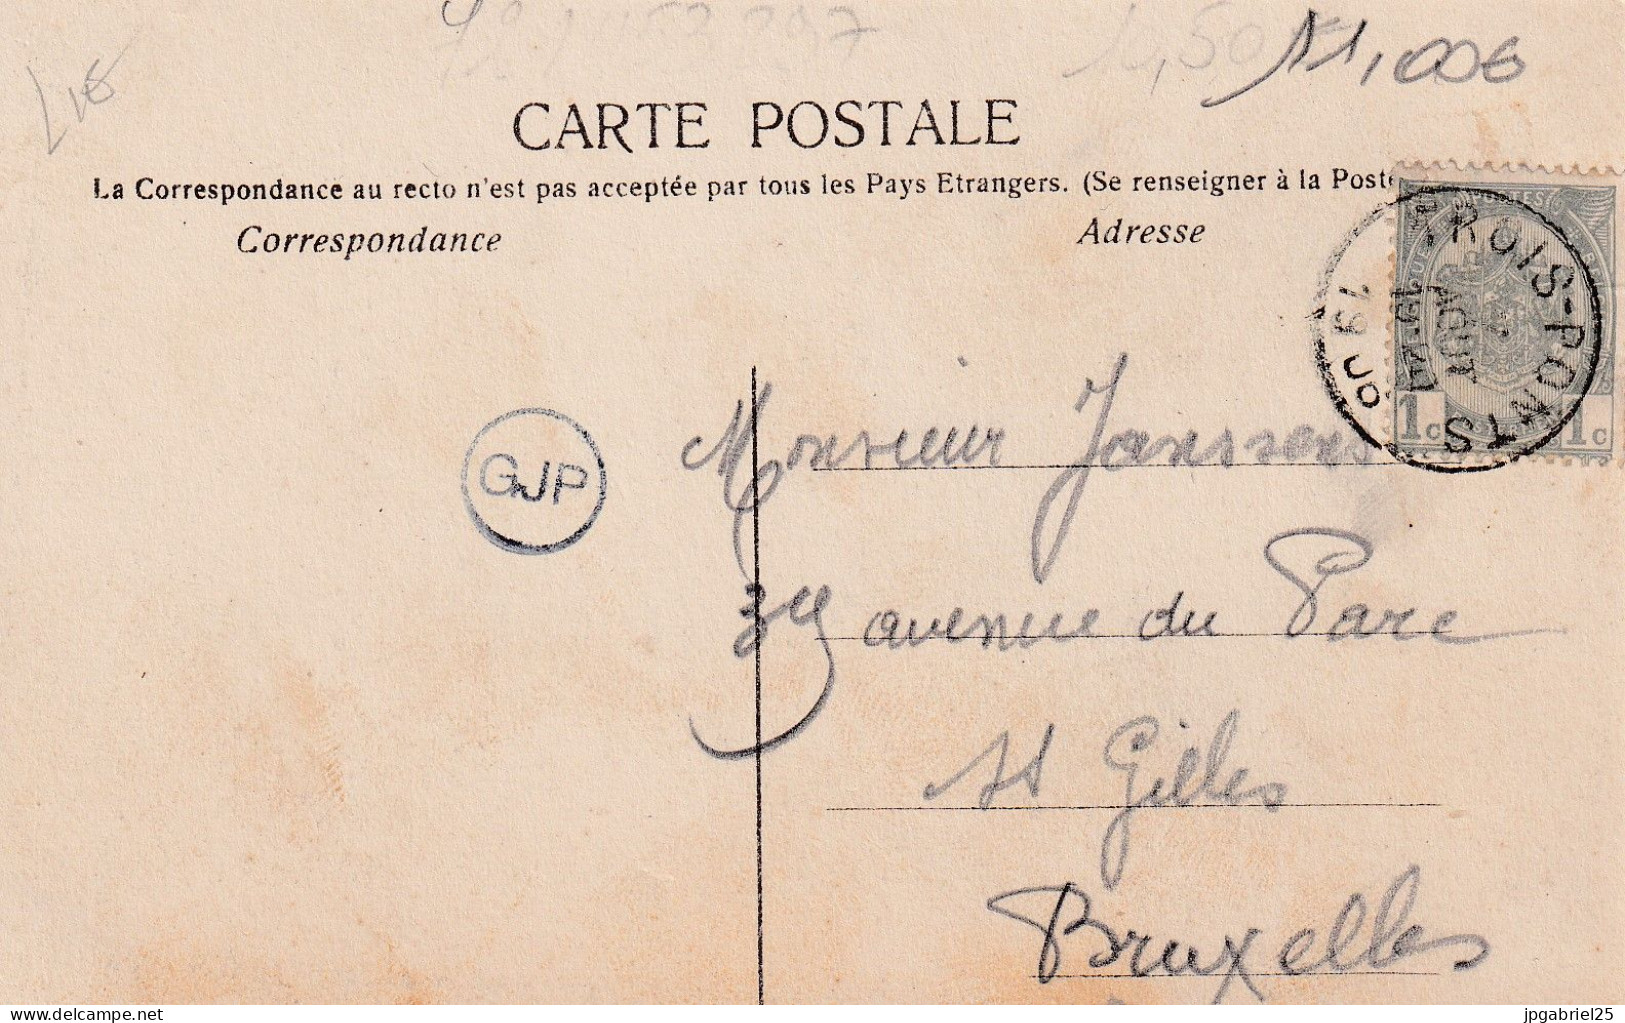 11,00€
CARTE POSTALE
La Correspondance au recto n'est pas acceptée par tous les Pays Etrangers. (Se renseigner à la Poste
Correspondance
Adresse
TROIS-PONTS
AOUT
1c 1c
GJP
Monsieur Janssens
39 avenue du Parc
St Gilles
Bruxelles
delcampe.net
jpgabriel25